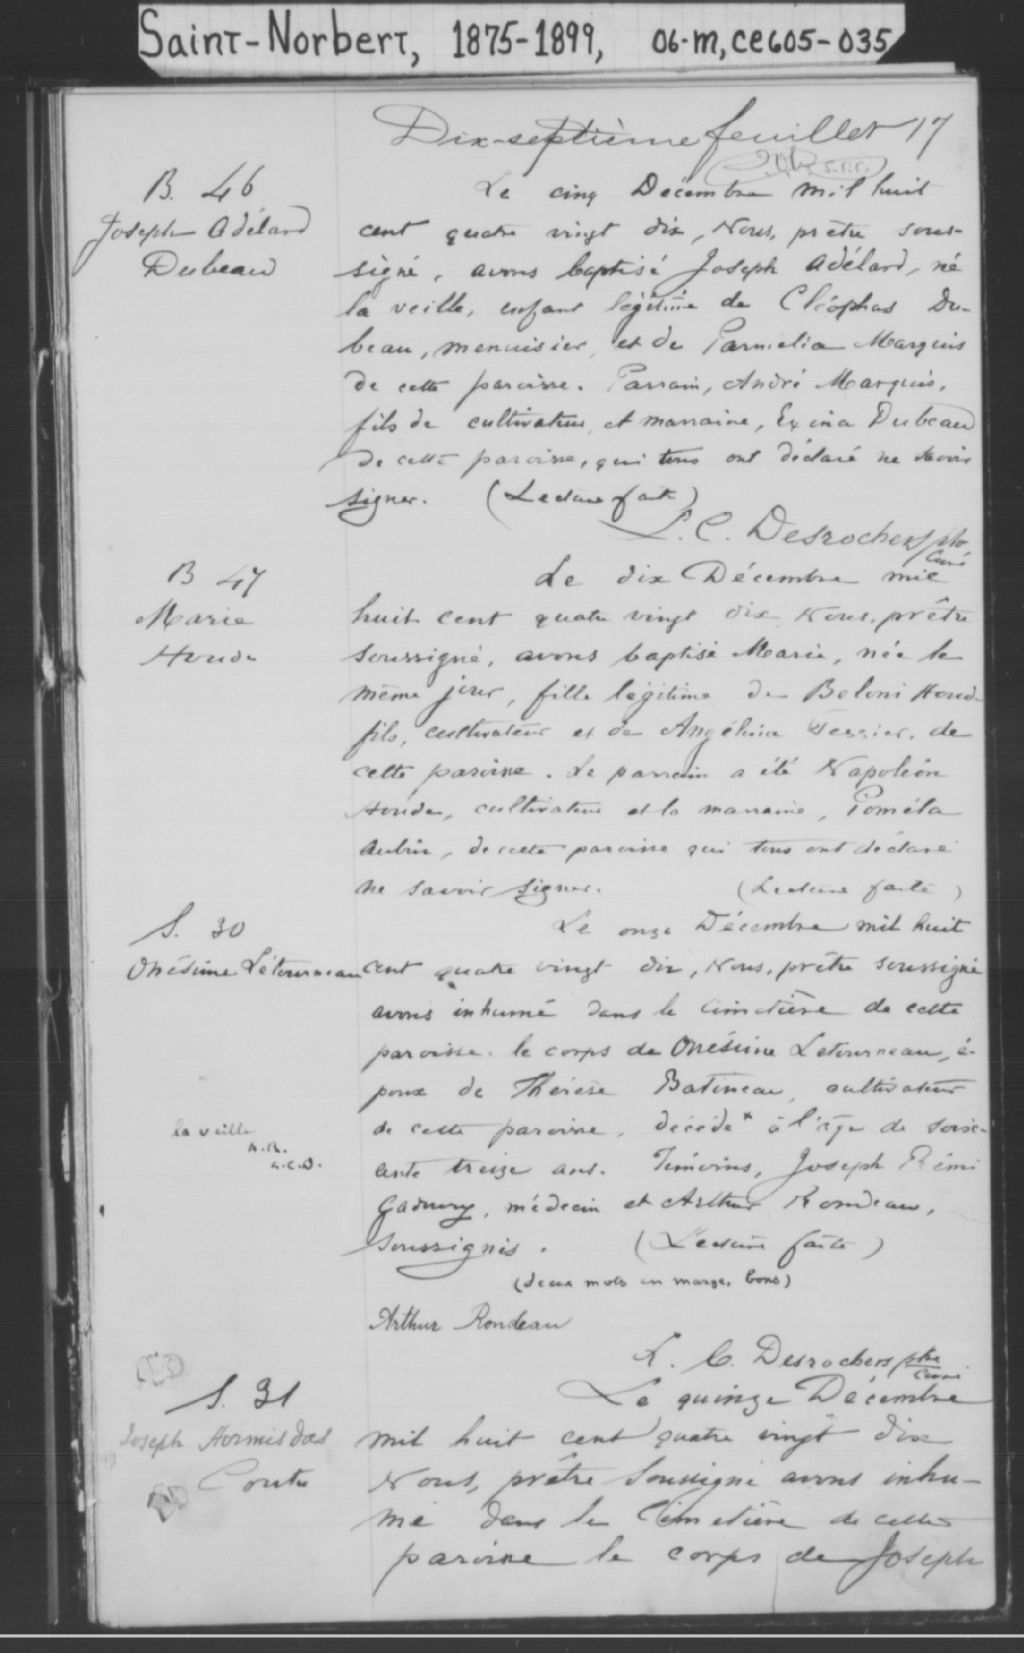 Saint-Norbert, 1875-1899, 06-M, CE605-035
Dix-septième feuillet 17
B. 46
Joseph Adélard
Dubeau
Le cinq Décembre mil huit
cent quatre vingt dix, Nous, prêtre sous-
signé, avons baptisé Joseph Adélard, né
la veille, enfant légitime de Cléophas Du-
beau, menuisier, et de Parmelia Marquis
de cette paroisse. Parrain, André Marquis,
fils de cultivateur, et marraine, Exina Dubeau
de cette paroisse, qui tous ont déclaré ne savoir
signer. (Lecture faite)
L. C. Desrochers ptre
Curé
B 47
Marie
Houde
Le dix Décembre mil
huit cent quatre vingt dix, Nous, prêtre
soussigné, avons baptisé Marie, née le
même jour, fille légitime de Beloni Houde
fils, cultivateur et de Angélina Tessier, de
cette paroisse. Le parrain a été Napoléon
Houde, cultivateur et la marraine, Poméla
Aubin, de cette paroisse qui tous ont déclaré
ne savoir signer. (Lecture faite)
S. 30
Onésime Létourneau
Le onze Décembre mil huit
cent quatre vingt dix, Nous, prêtre soussigné
avons inhumé dans le cimetière de cette
paroisse, le corps de Onésime Letourneau, é-
poux de Thérèse Batineau, cultivateur
de cette paroisse, décédé* à l'âge de soix-
ante treize ans. Témoins, Joseph Rémi
Gadoury, médecin et Arthur Rondeau,
soussignés. (Lecture faite)
(deux mots en marge, bons)
la veille
A.R.
L.C.D.
Arthur Rondeau
L. C. Desrochers ptre
Curé
S. 31
Joseph Hormisdas
Coutu
Le quinze Décembre
mil huit cent quatre vingt dix
Nous, prêtre soussigné avons inhu-
mé dans le Cimetière de cette
paroisse le corps de Joseph